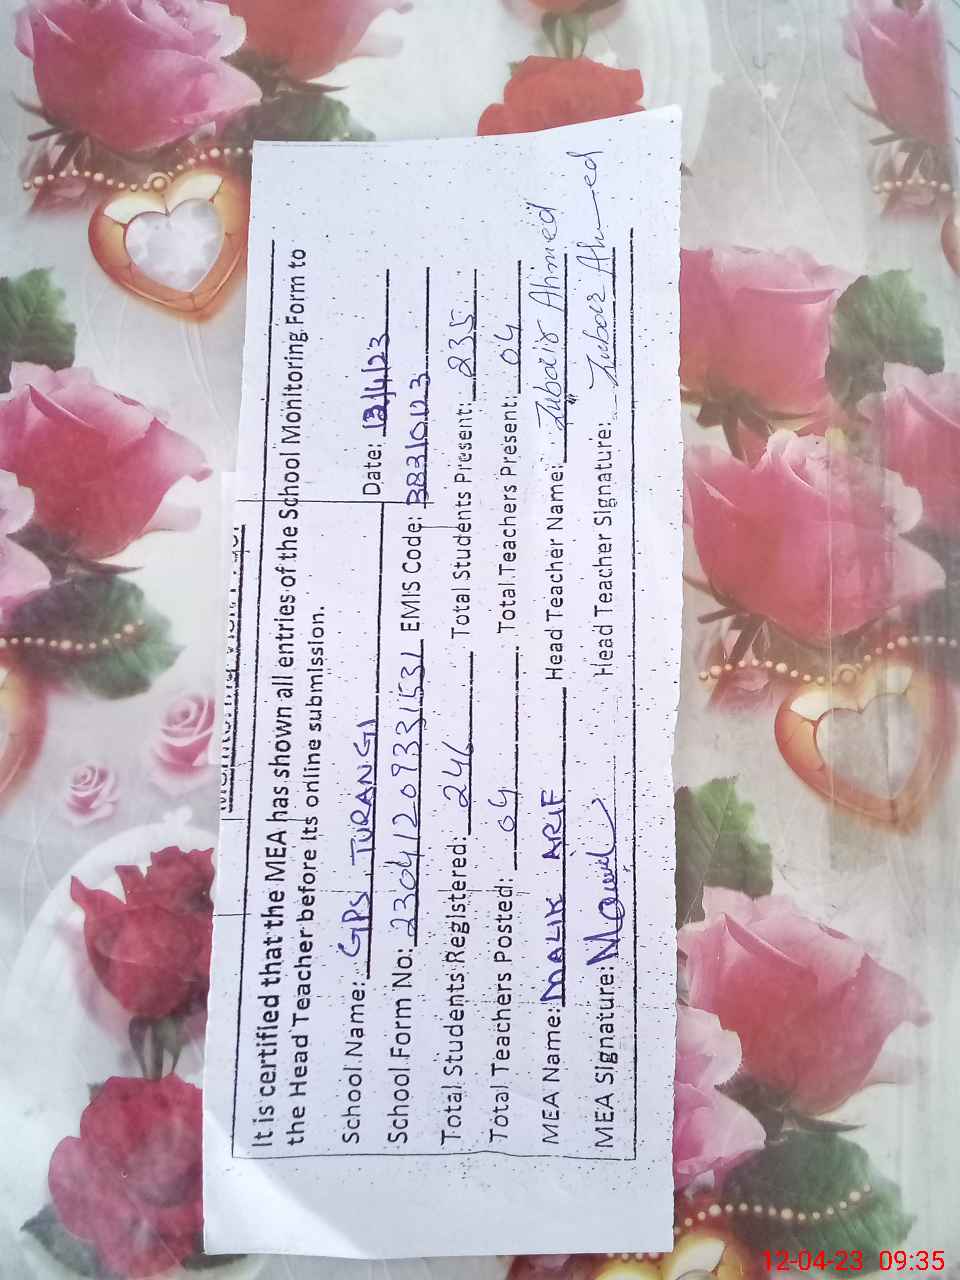 It is certified that the MEA has shown all entries of the School Monitoring Form to
the Head Teacher before its online submission.
School Name: GPS TURANGI Date: 12/4/23
School Form No: 23041209331531 EMIS Code: 38310123
Total Students Registered: 246 Total Students Present: 235
Total Teachers Posted: 04 Total Teachers Present: 04
MEA Name: MALIK ARIF Head Teacher Name: Zubair Ahmed
MEA Signature: Head Teacher Signature: Zubair Ahmed
12-04-23 09:35